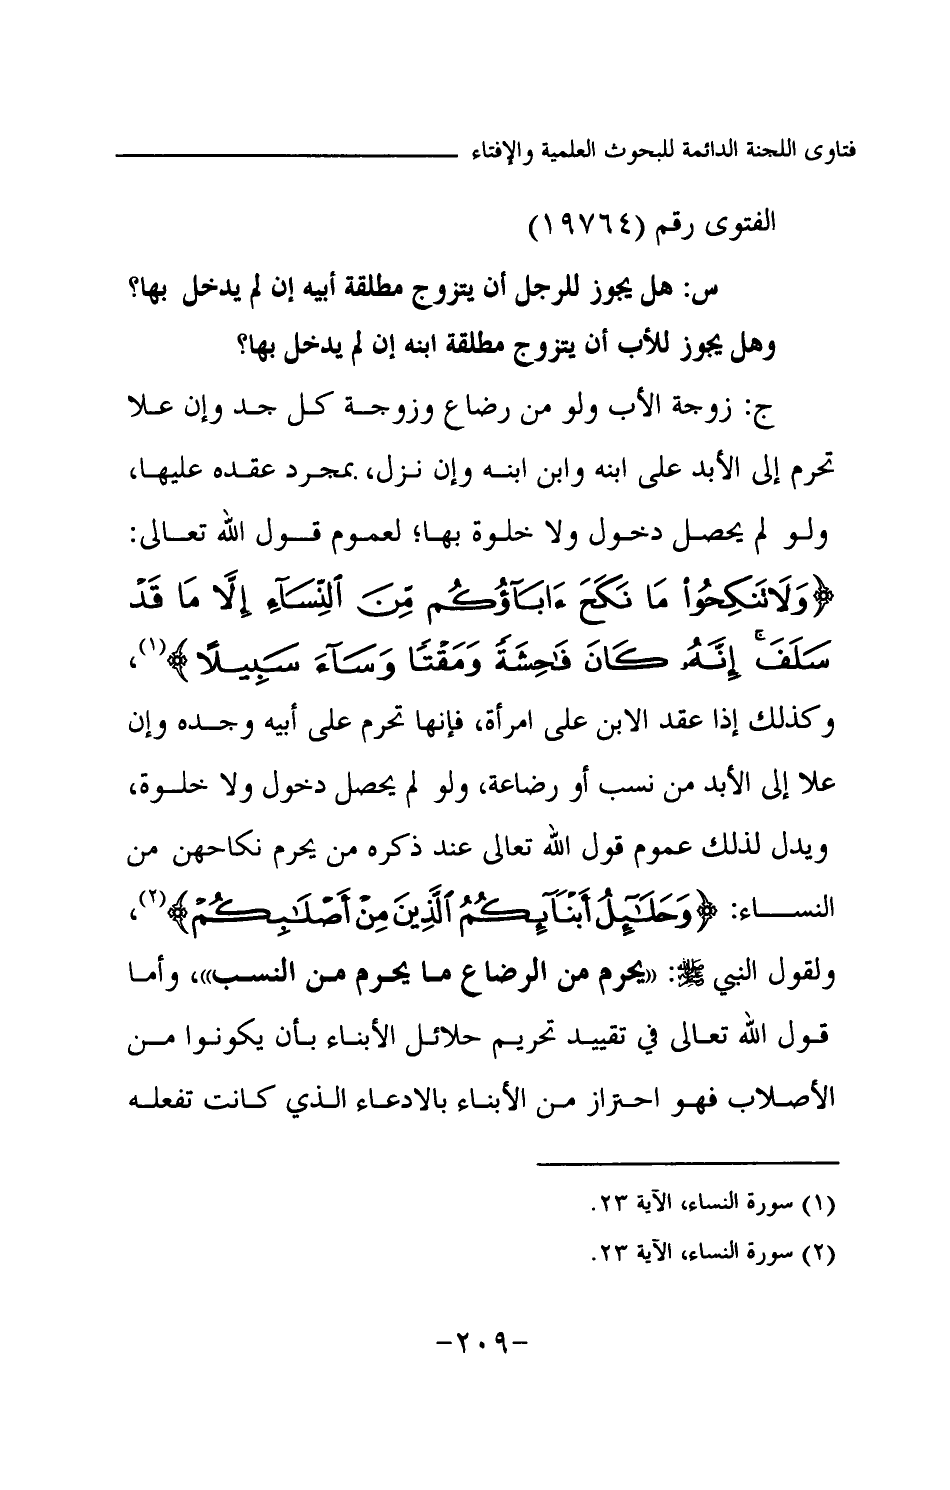 فتاوى اللجنة الدائمة للبحوث العلمية والإفتاء
الفتوى رقم (١٩٧٦٤)
س: هل يجوز للرجل أن يتزوج مطلقة أبيه إن لم يدخل بها؟
وهل يجوز للأب أن يتزوج مطلقة ابنه إن لم يدخل بها؟
ج: زوجة الأب ولو من رضاع وزوجة كل جد وإن علا
تحرم إلى الأبد على ابنه وابن ابنه وإن نزل، بمجرد عقده عليها،
ولو لم يحصل دخول ولا خلوة بها؛ لعموم قول الله تعالى:
﴿وَلَا تَنكِحُوا۟ مَا نَكَحَ ءَابَآؤُكُم مِّنَ ٱلنِّسَآءِ إِلَّا مَا قَدْ
سَلَفَ ۚ إِنَّهُۥ كَانَ فَٰحِشَةً وَمَقْتًا وَسَآءَ سَبِيلًا﴾(١)،
وكذلك إذا عقد الابن على امرأة، فإنها تحرم على أبيه وحده وإن
علا إلى الأبد من نسب أو رضاعة، ولو لم يحصل دخول ولا خلوة،
ويدل لذلك عموم قول الله تعالى عند ذكره من يحرم نكاحهن من
النساء: ﴿وَحَلَٰٓئِلُ أَبْنَآئِكُمُ ٱلَّذِينَ مِنْ أَصْلَٰبِكُمْ﴾(٢)،
ولقول النبي ﷺ: «يحرم من الرضاع ما يحرم من النسب»، وأما
قول الله تعالى في تقييد تحريم حلائل الأبناء بأن يكونوا من
الأصلاب فهو احتراز من الأبناء بالادعاء الذي كانت تفعله
(١) سورة النساء، الآية ٢٣.
(٢) سورة النساء، الآية ٢٣.
-٢٠٩-